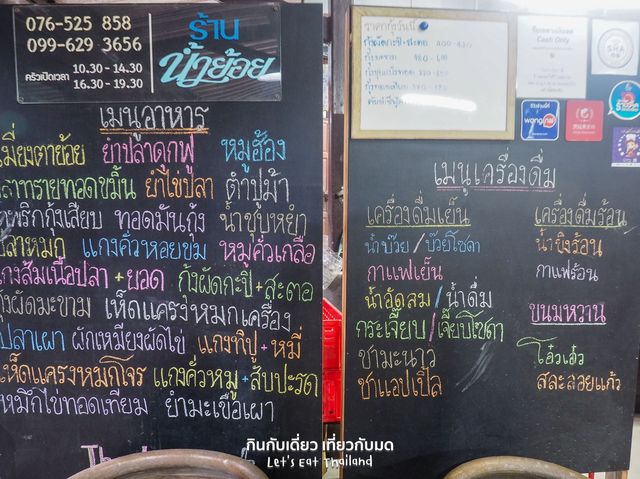 076-525 858
099-629 3656
ครัวเปิดเวลา 10.30 - 14.30
16.30 - 19.30
ร้าน
น้ำย้อย
เมนูอาหาร
เมี่ยงตาย้อย ยำปลาดุกฟู หมูฮ้อง
ทรายทอดขมิ้น ยำไข่ปลา ตำปูม้า
พริกกุ้งเสียบ ทอดมันกุ้ง น้ำชุบหยำ
แกงคั่วหอยขม หมูคั่วเกลือ
แกงส้มเนื้อปลา + ยอด กุ้งผัดกะปิ + สะตอ
กุ้งผัดมะขาม เห็ดแครงหมกเครื่อง
ปลาเผา ผักเหมียงผัดไข่ แกงกะทิปู + หมี่
เห็ดแครงหมกโจร แกงคั่วหมู + สับปะรด
หมึกไข่ทอดเทียม ยำมะเขือเผา
ราคากุ้งวันนี้
Cash Only
SHA
wongnai
เมนูเครื่องดื่ม
เครื่องดื่มเย็น
น้ำบ๊วย / บ๊วยโซดา
กาแฟเย็น
น้ำอัดลม / น้ำดื่ม
กระเจี๊ยบ / เจี๊ยบโซดา
ชามะนาว
ชาแอปเปิ้ล
เครื่องดื่มร้อน
น้ำขิงร้อน
กาแฟร้อน
ขนมหวาน
โอ๋วเอ๋ว
สละลอยแก้ว
กินกับเดี่ยว เที่ยวกับมด
Let's Eat Thailand